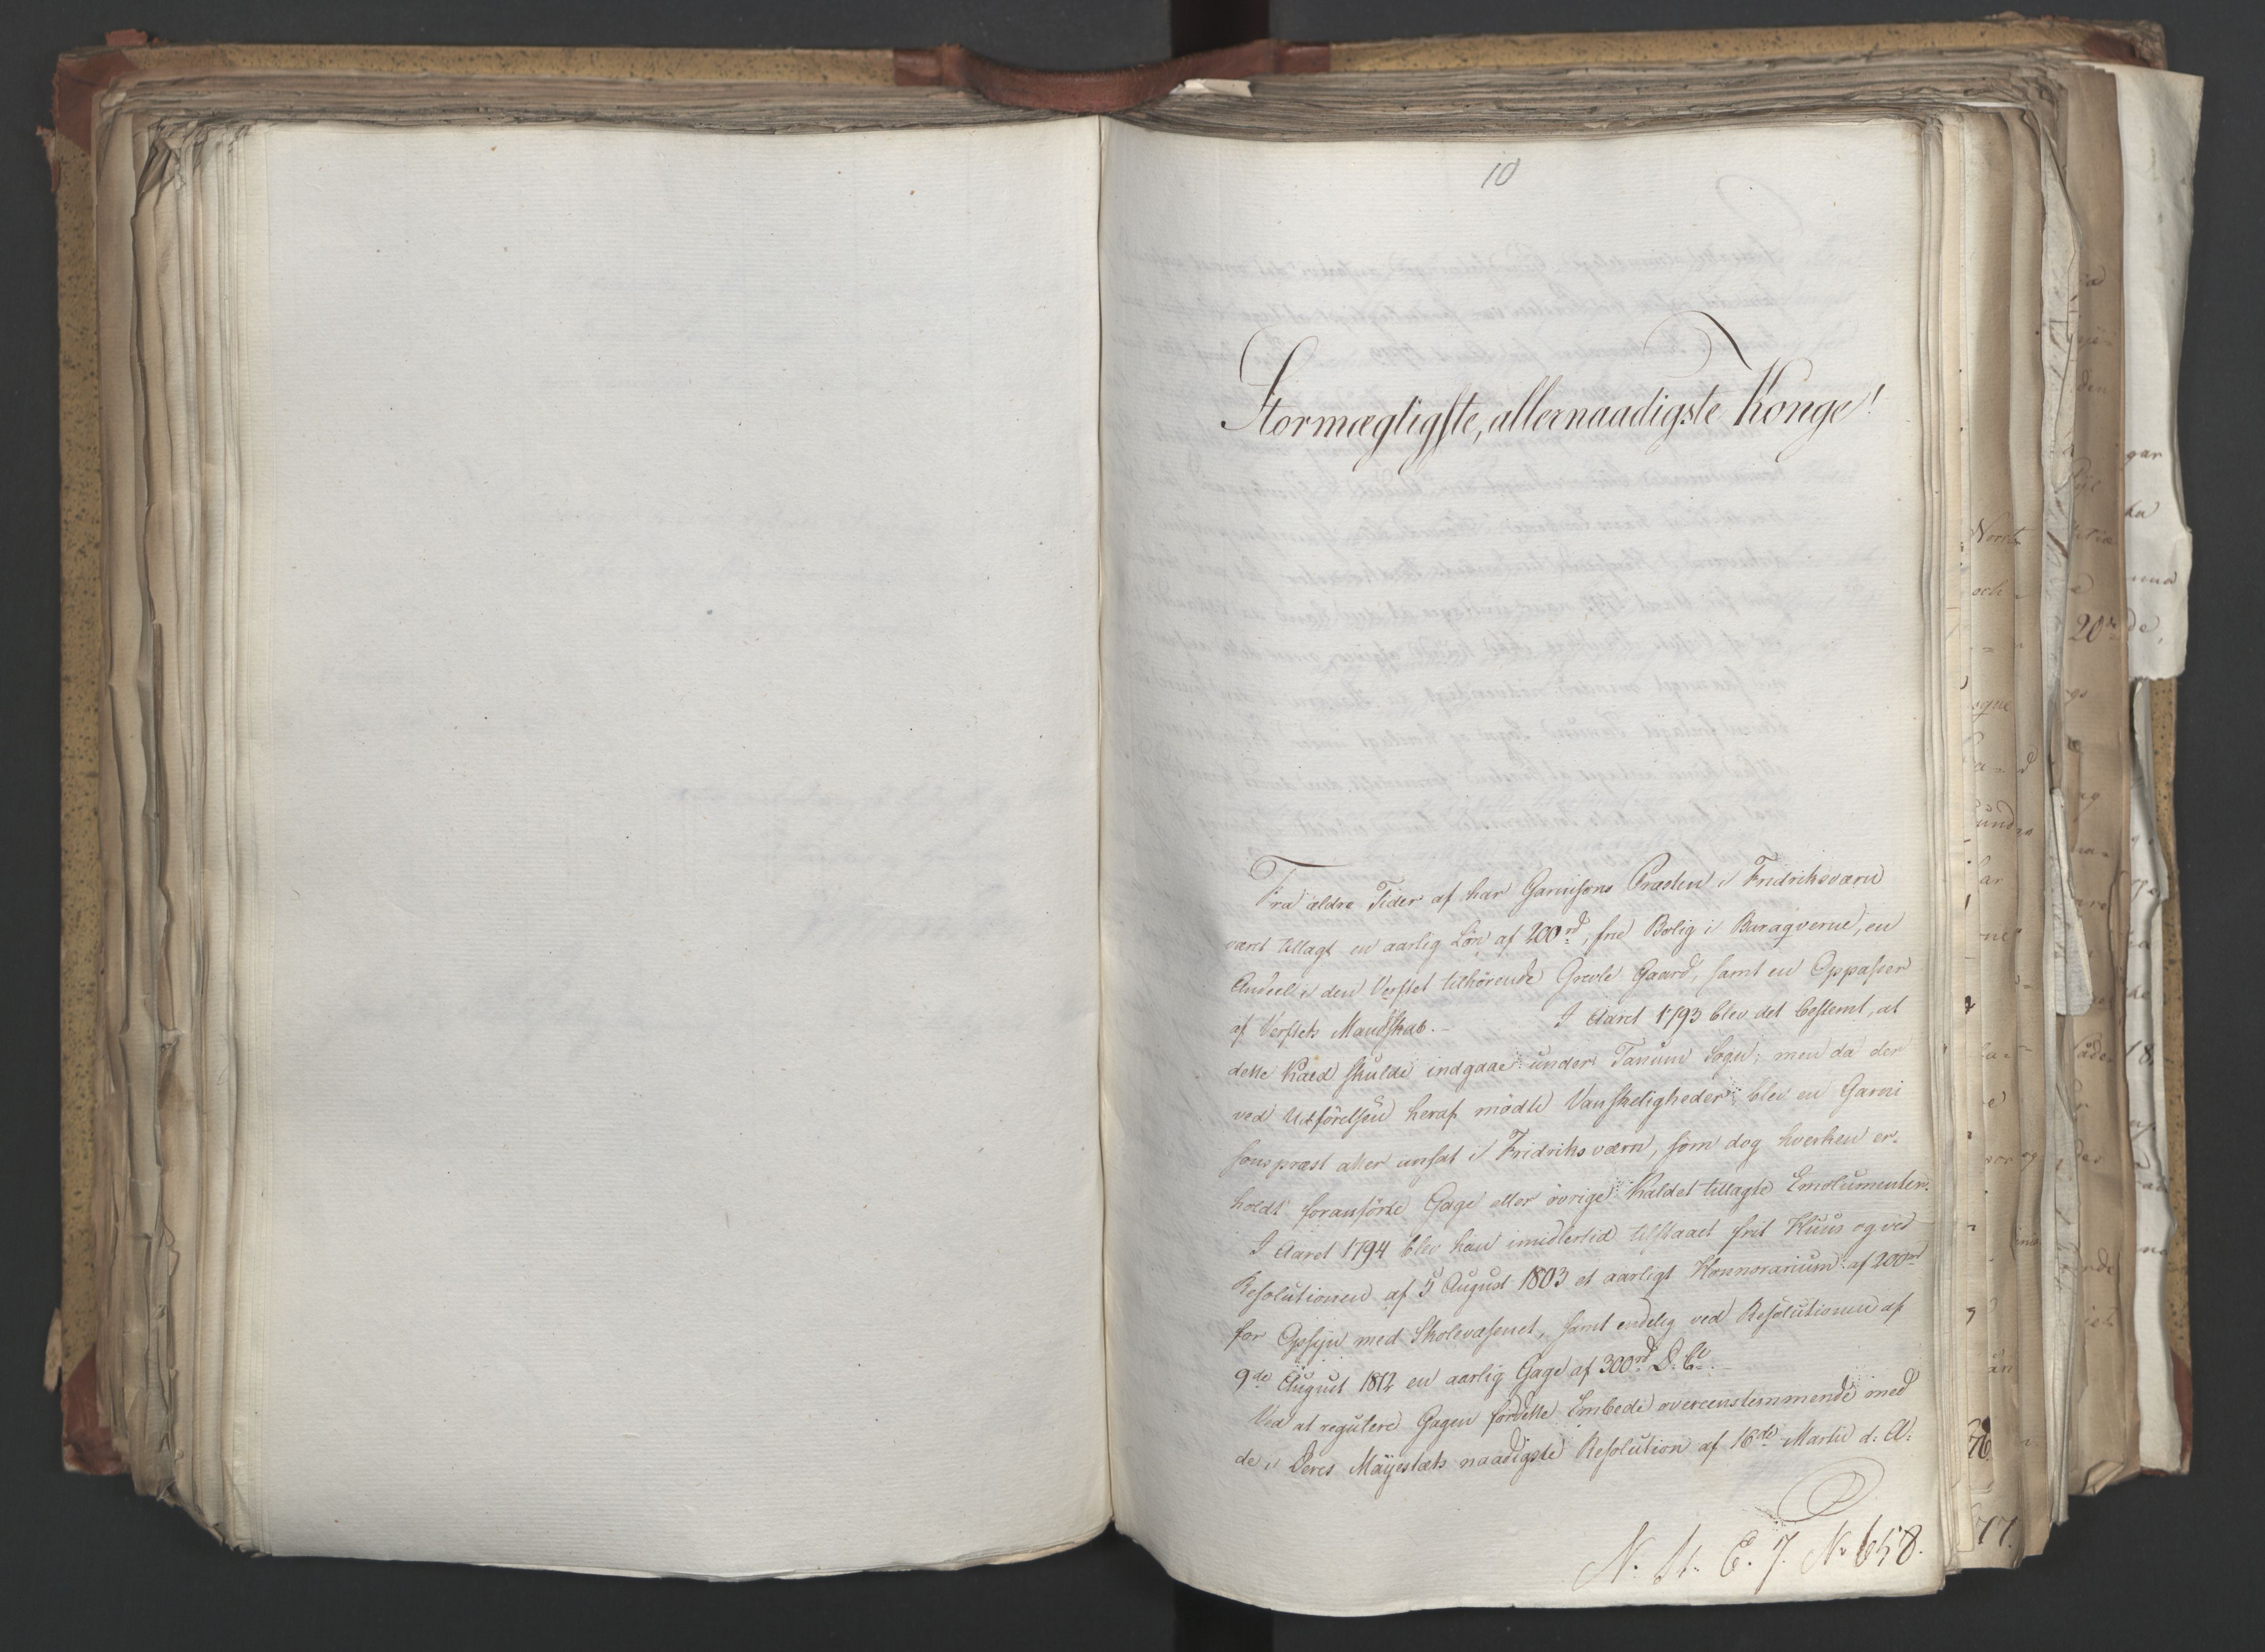 10
Stormægtigste, allernaadigste Konge!
Fra ældre Tider af har Garnisons Præsten i Fridriksværn
været tillagt en aarlig Lön af 200rd, frie Bolig i Baraqverne, en
Andeel i den Verftet tilhörende Grevle Gaard, samt en Oppasser
af Verftets Mandskab. - I Aaret 1793 blev det bestemt, at
dette Kald skulde indgaae under Tanum Sogn; men da der
ved Udförelsen heraf mödte Vanskeligheder blev en Garni
sonspræst atter ansat i Fridriksværn, som dog hverken er-
holdt foranförte Gage eller övrige Kaldet tillagte Emolumenter.
I Aaret 1794 blev han imidlertid tilstaaet frit Huus og ved
Resolutionen af 5 August 1803 et aarligt Honnorarium af 200rd
for Opsyn med Skolevæsenet, samt endelig ved Resolutionen af
9de August 1812 en aarlig Gage af 300rd D. C.
Ved at regulere Gagen for dette Embede overeenstemmende med
de i Deres Mayestæts naadigste Resolution af 16de Martii d: A:
N. St. E. 7. No 658.
20de
76
77.